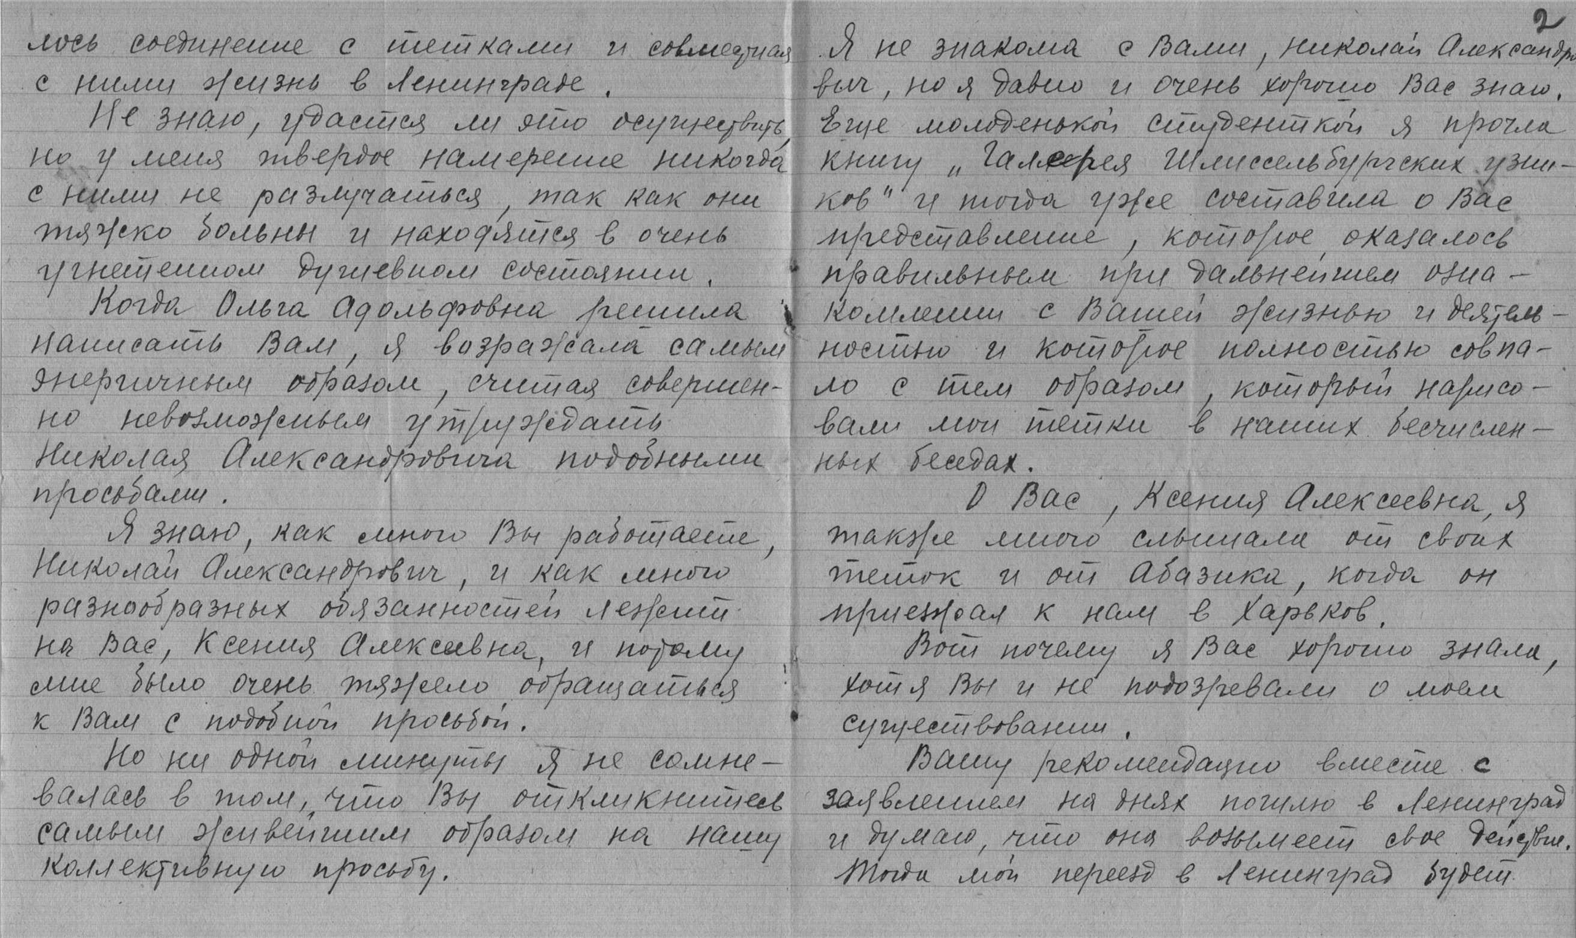 лось соединение с тетками и совместная
с ними жизнь в Ленинграде.
Не знаю, удастся ли это осуществить,
но у меня твердое намерение никогда
с ними не разлучаться, так как они
тяжко больны и находятся в очень
угнетенном душевном состоянии.
Когда Ольга Адольфовна решила
написать Вам, я возражала самым
энергичным образом, считая совершен-
но невозможным утруждать
Николая Александровича подобными
просьбами.
Я знаю, как много Вы работаете,
Николай Александрович, и как много
разнообразных обязанностей лежит
на Вас, Ксения Алексеевна, и потому
мне было очень тяжело обращаться
к Вам с подобной просьбой.
Но ни одной минуты я не сомне-
валась в том, что Вы откликнитесь
самым живейшим образом на нашу
коллективную просьбу.
2
Я не знакома с Вами, Николай Александро
вич, но я давно и очень хорошо Вас знаю.
Еще молоденькой студенткой я прочла
книгу „Галлерея Шлиссельбургских узни-
ков" и тогда уже составила о Вас
представление, которое оказалось
правильным при дальнейшем озна-
комлении с Вашей жизнью и деятель-
ностью и которое полностью совпа-
ло с тем образом, который нарисо-
вали мои тетки в наших бесчислен-
ных беседах.
О Вас, Ксения Алексеевна, я
также много слышала от своих
теток и от Абазика, когда он
приезжал к нам в Харьков.
Вот почему я Вас хорошо знала,
хотя Вы и не подозревали о моем
существовании.
Вашу рекомендацию вместе с
заявлением на днях пошлю в Ленинград
и думаю, что она возымеет свое действие.
Тогда мой переезд в Ленинград будет